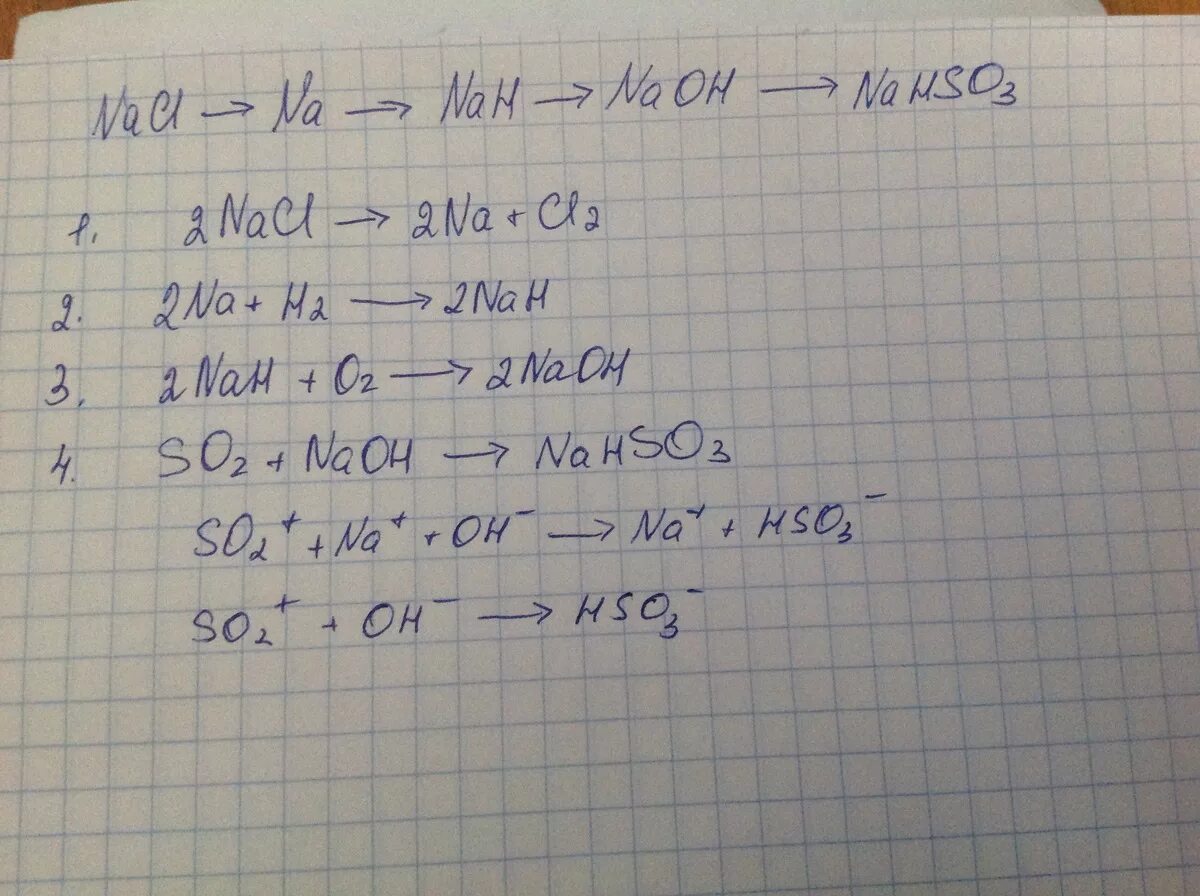 NaCl → Na → NaH → NaOH → NaHSO3
1. 2NaCl → 2Na + Cl2
2. 2Na + H2 → 2NaH
3. 2NaH + O2 → 2NaOH
4. SO2 + NaOH → NaHSO3
SO2⁺ + Na⁺ + OH⁻ → Na⁺ + HSO3⁻
SO2⁺ + OH⁻ → HSO3⁻